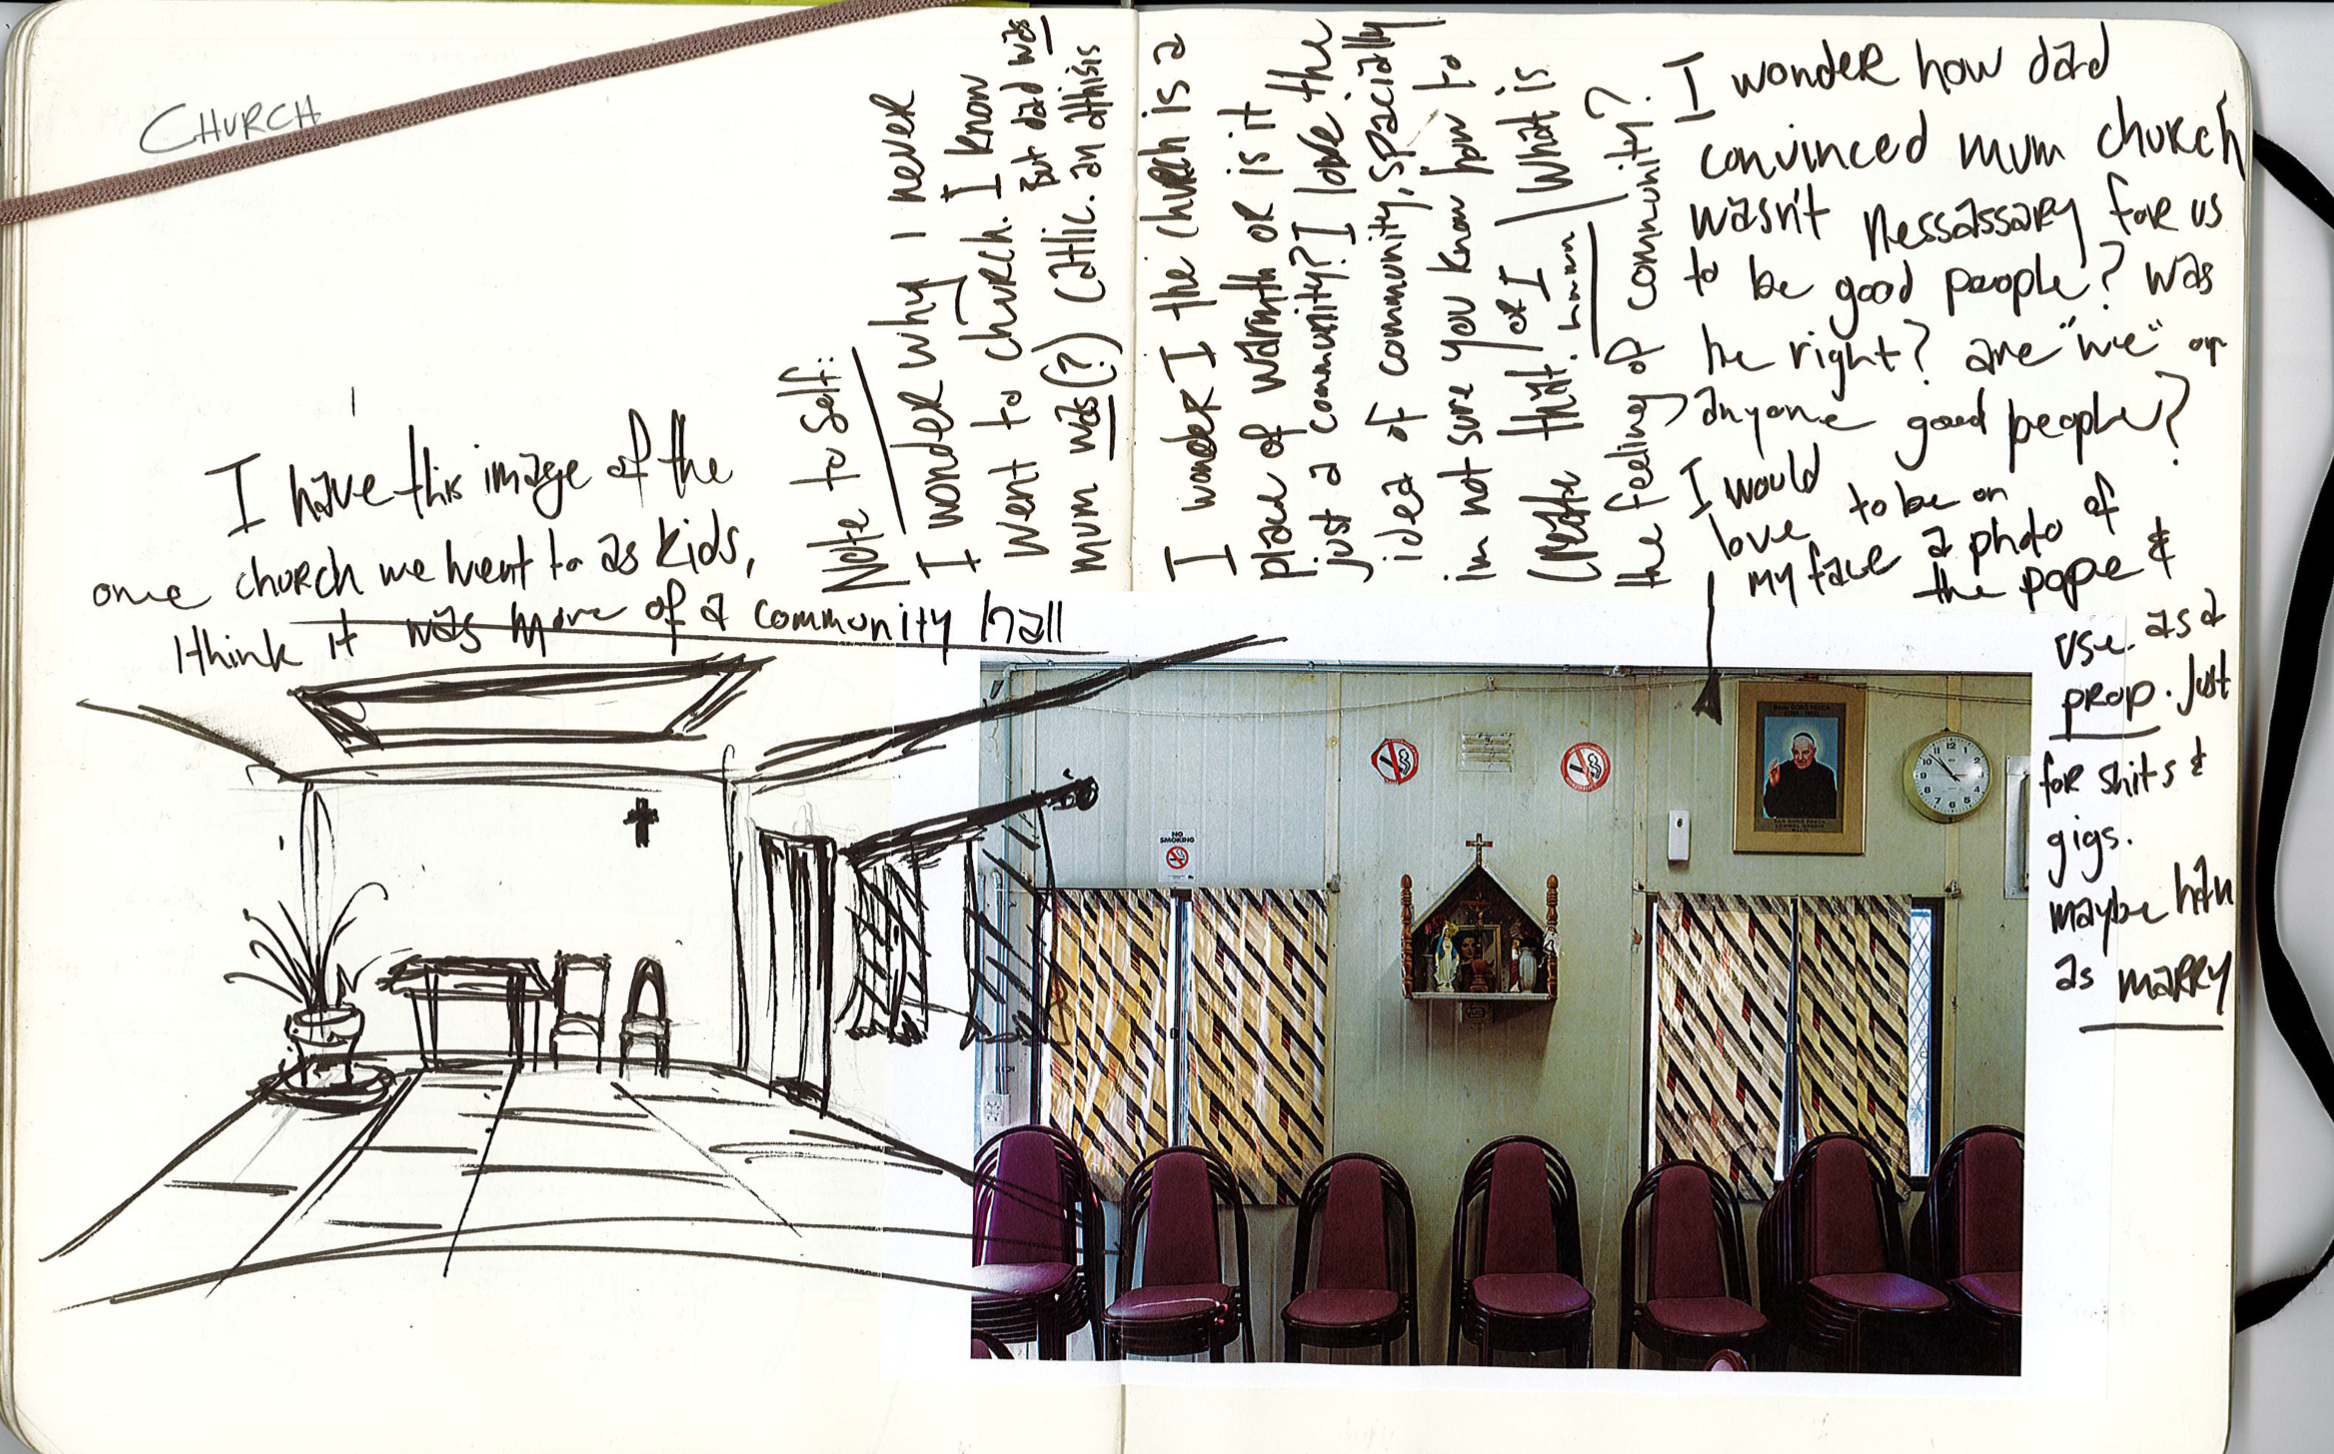 CHURCH
I have this image of the
one church we went to as kids,
I think it was more of a community hall
Note to self:
I wonder why I never
went to church. I know
mum was(?) Cathlic.
But dad was
an athisis
I wonder I the church is a
place of warmth or is it
just a community? I love the
idea of community, spacially
im not sure you know how to
Create that. / or I / What is
hmmm
the feeling of community?
I wonder how dad
convinced mum church
wasn't nessassary for us
to be good people? was
he right? are "we" or
anyone good people?
I would
love to be on
my face a photo of
the pope &
use. as a
prop. Just
for shits &
gigs.
maybe
as marry
NO
SMOKING
12
1
2
3
4
5
6
7
8
9
10
11